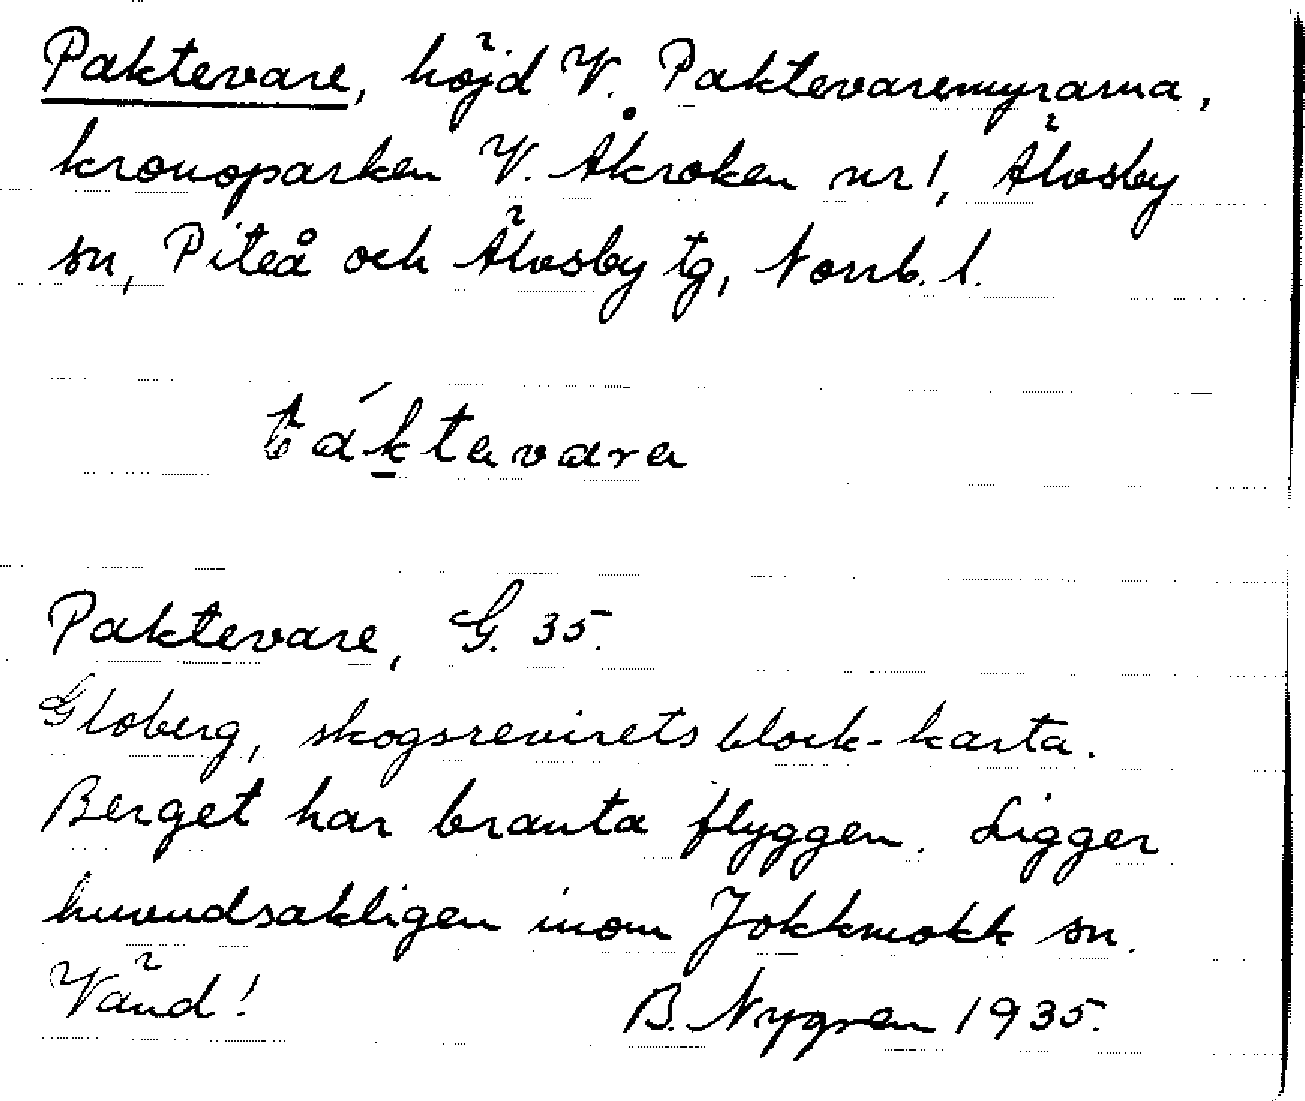 Paktevare, höjd V. Paktevaremyrarna,
kronoparken V. Åkroken nr 1, Älvsby
sn, Piteå och Älvsby tg, Norrb. l.
Paktevare, G. 35.
berg, skogsrevirets block-karta.
Berget har branta flyggen. Ligger
huvudsakligen inom Jokkmokk sn.
Vänd! B. Nygren 1935.